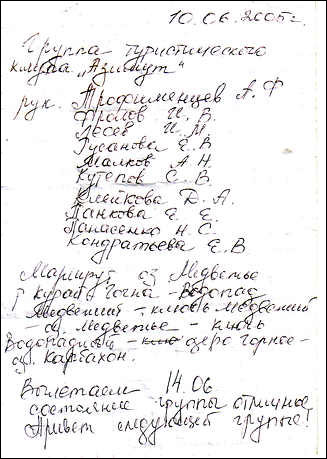 10.06.2005г.
Группа туристического
клуба „Азимут“
рук. Трофименцев А.Ф
Фролов И.В.
Лосев И.М.
Гусанова Е.В
Малков А.Н.
Кутепов С.В
Клейкова Д.А.
Панкова Е.Е.
Панасенко Н.С.
Кондратьева Е.В
Маршрут, оз Медвежье
Гочна - Водопад
Медвежий - ключ Медвежий
- оз. Медвежье - ключ
Водопадный - озеро горное -
оз. Карбахон.
Вылетаем 14.06
состояние группы отличное
Привет следующей группе!